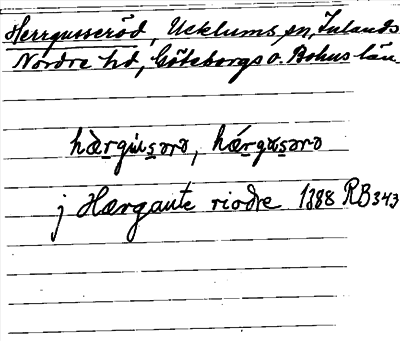 Herrgusseröd, Ucklums sn, Inlands
Nordre hd, Göteborgs o. Bohus län.
hærgusərə, hærgusərə
j Hærgaute riodre 1388 RB 343